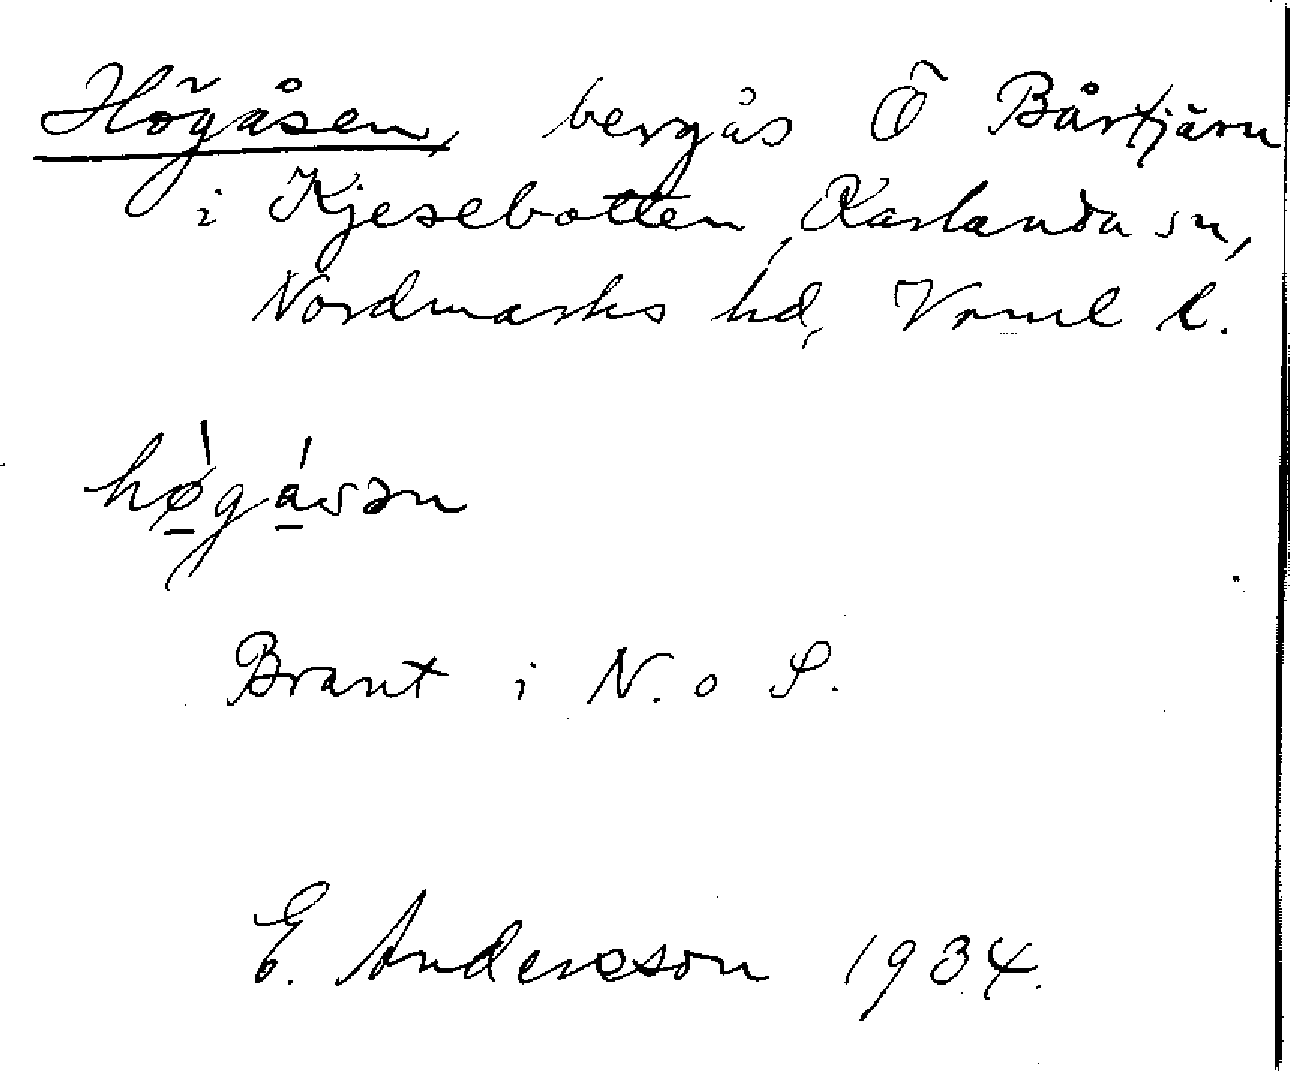 Högåsen, bergås Ö Bårtjärn
i Kjesebotten, Karlanda sn,
Nordmarks hd, Vrml l.
hǿ̱gá̱sən
Brant i N. o S.
E. Andersson 1934.